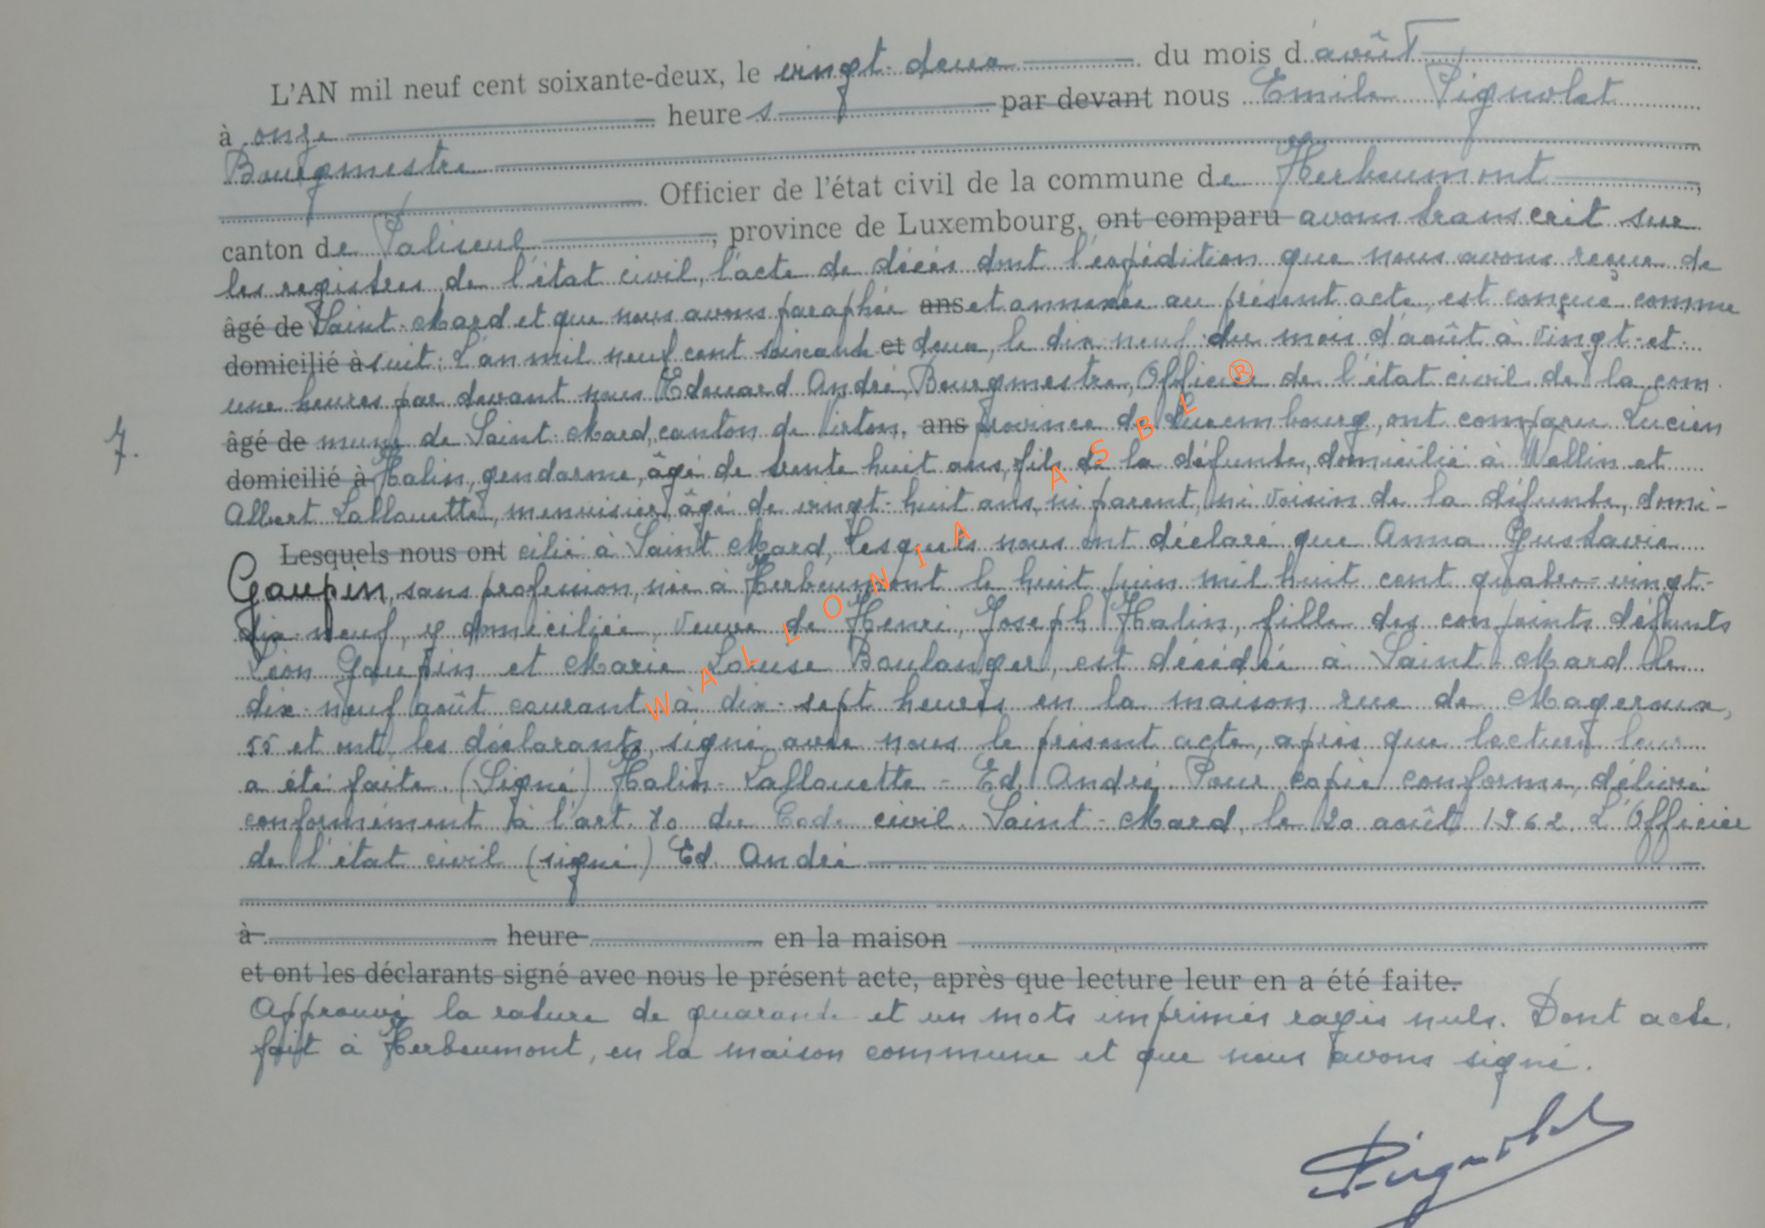 L'AN mil neuf cent soixante-deux, le vingt-deux du mois d'août
à onze heures par devant nous Emile Pignolet
Bourgmestre
Officier de l'état civil de la commune de Herbeumont,
canton de Paliseul, province de Luxembourg, ont comparu avons transcrit sur
les registres de l'état civil, l'acte de décès dont l'expédition que nous avons reçue de
âgé de Saint-Mard et que nous avons paraphée ans et annexée au présent acte, est conçue comme
domicilié à suit: L'an mil neuf cent soixante et deux, le dix-neuf du mois d'août à vingt-et-
une heures par devant nous Edouard André, Bourgmestre, Officier de l'état civil de la com
7. âgé de mune de Saint-Mard, canton de Virton, ans province de Luxembourg, ont comparu Lucien
domicilié à Halin, gendarme, âgé de trente huit ans, fils de la défunte, domicilié à Wellin et
Albert Lallouette, menuisier, âgé de vingt-huit ans, ni parent, ni voisin de la défunte, domi-
Lesquels nous ont cilié à Saint Mard, Lesquels nous ont déclaré que Anna Gustavie
Goupin, sans profession, née à Herbeumont le huit juin mil huit cent quatre-vingt-
dix-neuf, y domiciliée, veuve de Henri, Joseph Halin, fille des conjoints défunts
Léon Goupin et Marie Louise Boulanger, est décédée à Saint-Mard le
dix-neuf août courant à dix-sept heures en la maison rue de Mageroux,
55 et ont les déclarants signé avec nous le présent acte, après que lecture leur
a été faite. (Signé) Halin-Lallouette-Ed. André. Pour copie conforme, délivré
conformément à l'art. 80 du Code civil. Saint-Mard, le 20 août 1962. L'Officier
de l'état civil (signé) Ed. André
à heure en la maison
et ont les déclarants signé avec nous le présent acte, après que lecture leur en a été faite.
Approuvé la rature de quarante et un mots imprimés rayés nuls. Dont acte,
fait à Herbeumont, en la maison commune et que nous avons signé.
Pignolet
WALLONIA ASBL ®